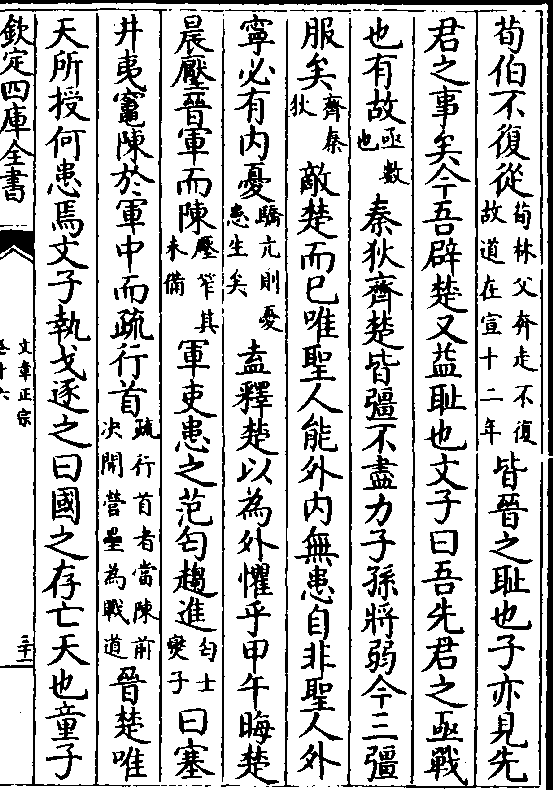 荀伯不復從荀林父奔走不復故道在宣十二年皆晉之耻也子亦見先
君之事矣今吾辟楚又益耻也文子曰吾先君之亟戰
也有故亟數也秦狄齊楚皆彊不盡力子孫將弱今三彊
服矣齊秦狄敵楚而已唯聖人能外内無患自非聖人外
寧必有内憂驕亢則憂患生矣盍釋楚以為外懼乎甲午晦楚
晨壓晉軍而陳壓笮其未備軍吏患之范匄趨進匄士燮子曰塞
井夷竈陳於軍中而疏行首疏行首者當陳前决開營壘為戰道晉楚唯
天所授何患焉文子執戈逐之曰國之存亡天也童子
欽定四庫全書
文章正宗